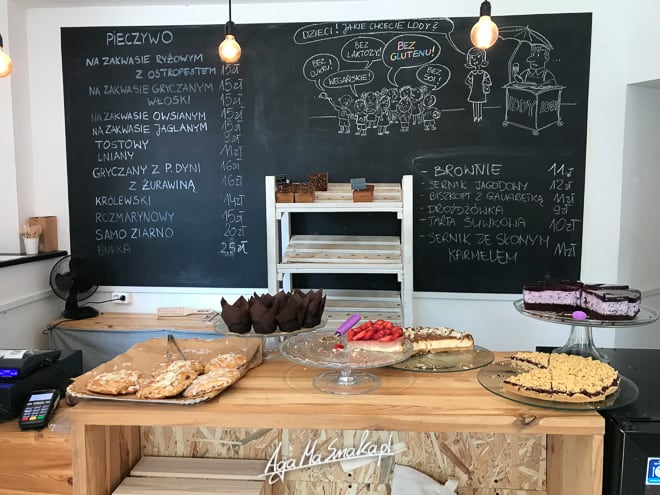 PIECZYWO
NA ZAKWASIE RYŻOWYM
Z OSTROPESTEM 15zł
NA ZAKWASIE GRYCZANYM 15zł
WŁOSKI 15zł
NA ZAKWASIE OWSIANYM 15zł
NA ZAKWASIE JAGLANYM 15zł
TOSTOWY 9zł
LNIANY 11zł
GRYCZANY Z P. DYNI 16zł
Z ŻURAWINĄ 16zł
KRÓLEWSKI 14zł
ROZMARYNOWY 15zł
SAMO ZIARNO 20zł
BUŁKA 2,5zł
DZIECI! JAKIE CHCECIE LODY?
BEZ CUKRU!
WEGAŃSKIE!
BEZ LAKTOZY!
BEZ GLUTENU!
BEZ SOI!
LODY LODY
- BROWNIE 11zł
- SERNIK JAGODOWY 12zł
- BISZKOPT Z GALARETKĄ 11zł
- DROŻDŻÓWKA 9zł
- TARTA ŚLIWKOWA 10zł
- SERNIK ZE SŁONYM
KARMELEM 11zł
AgaMaSmaka.pl